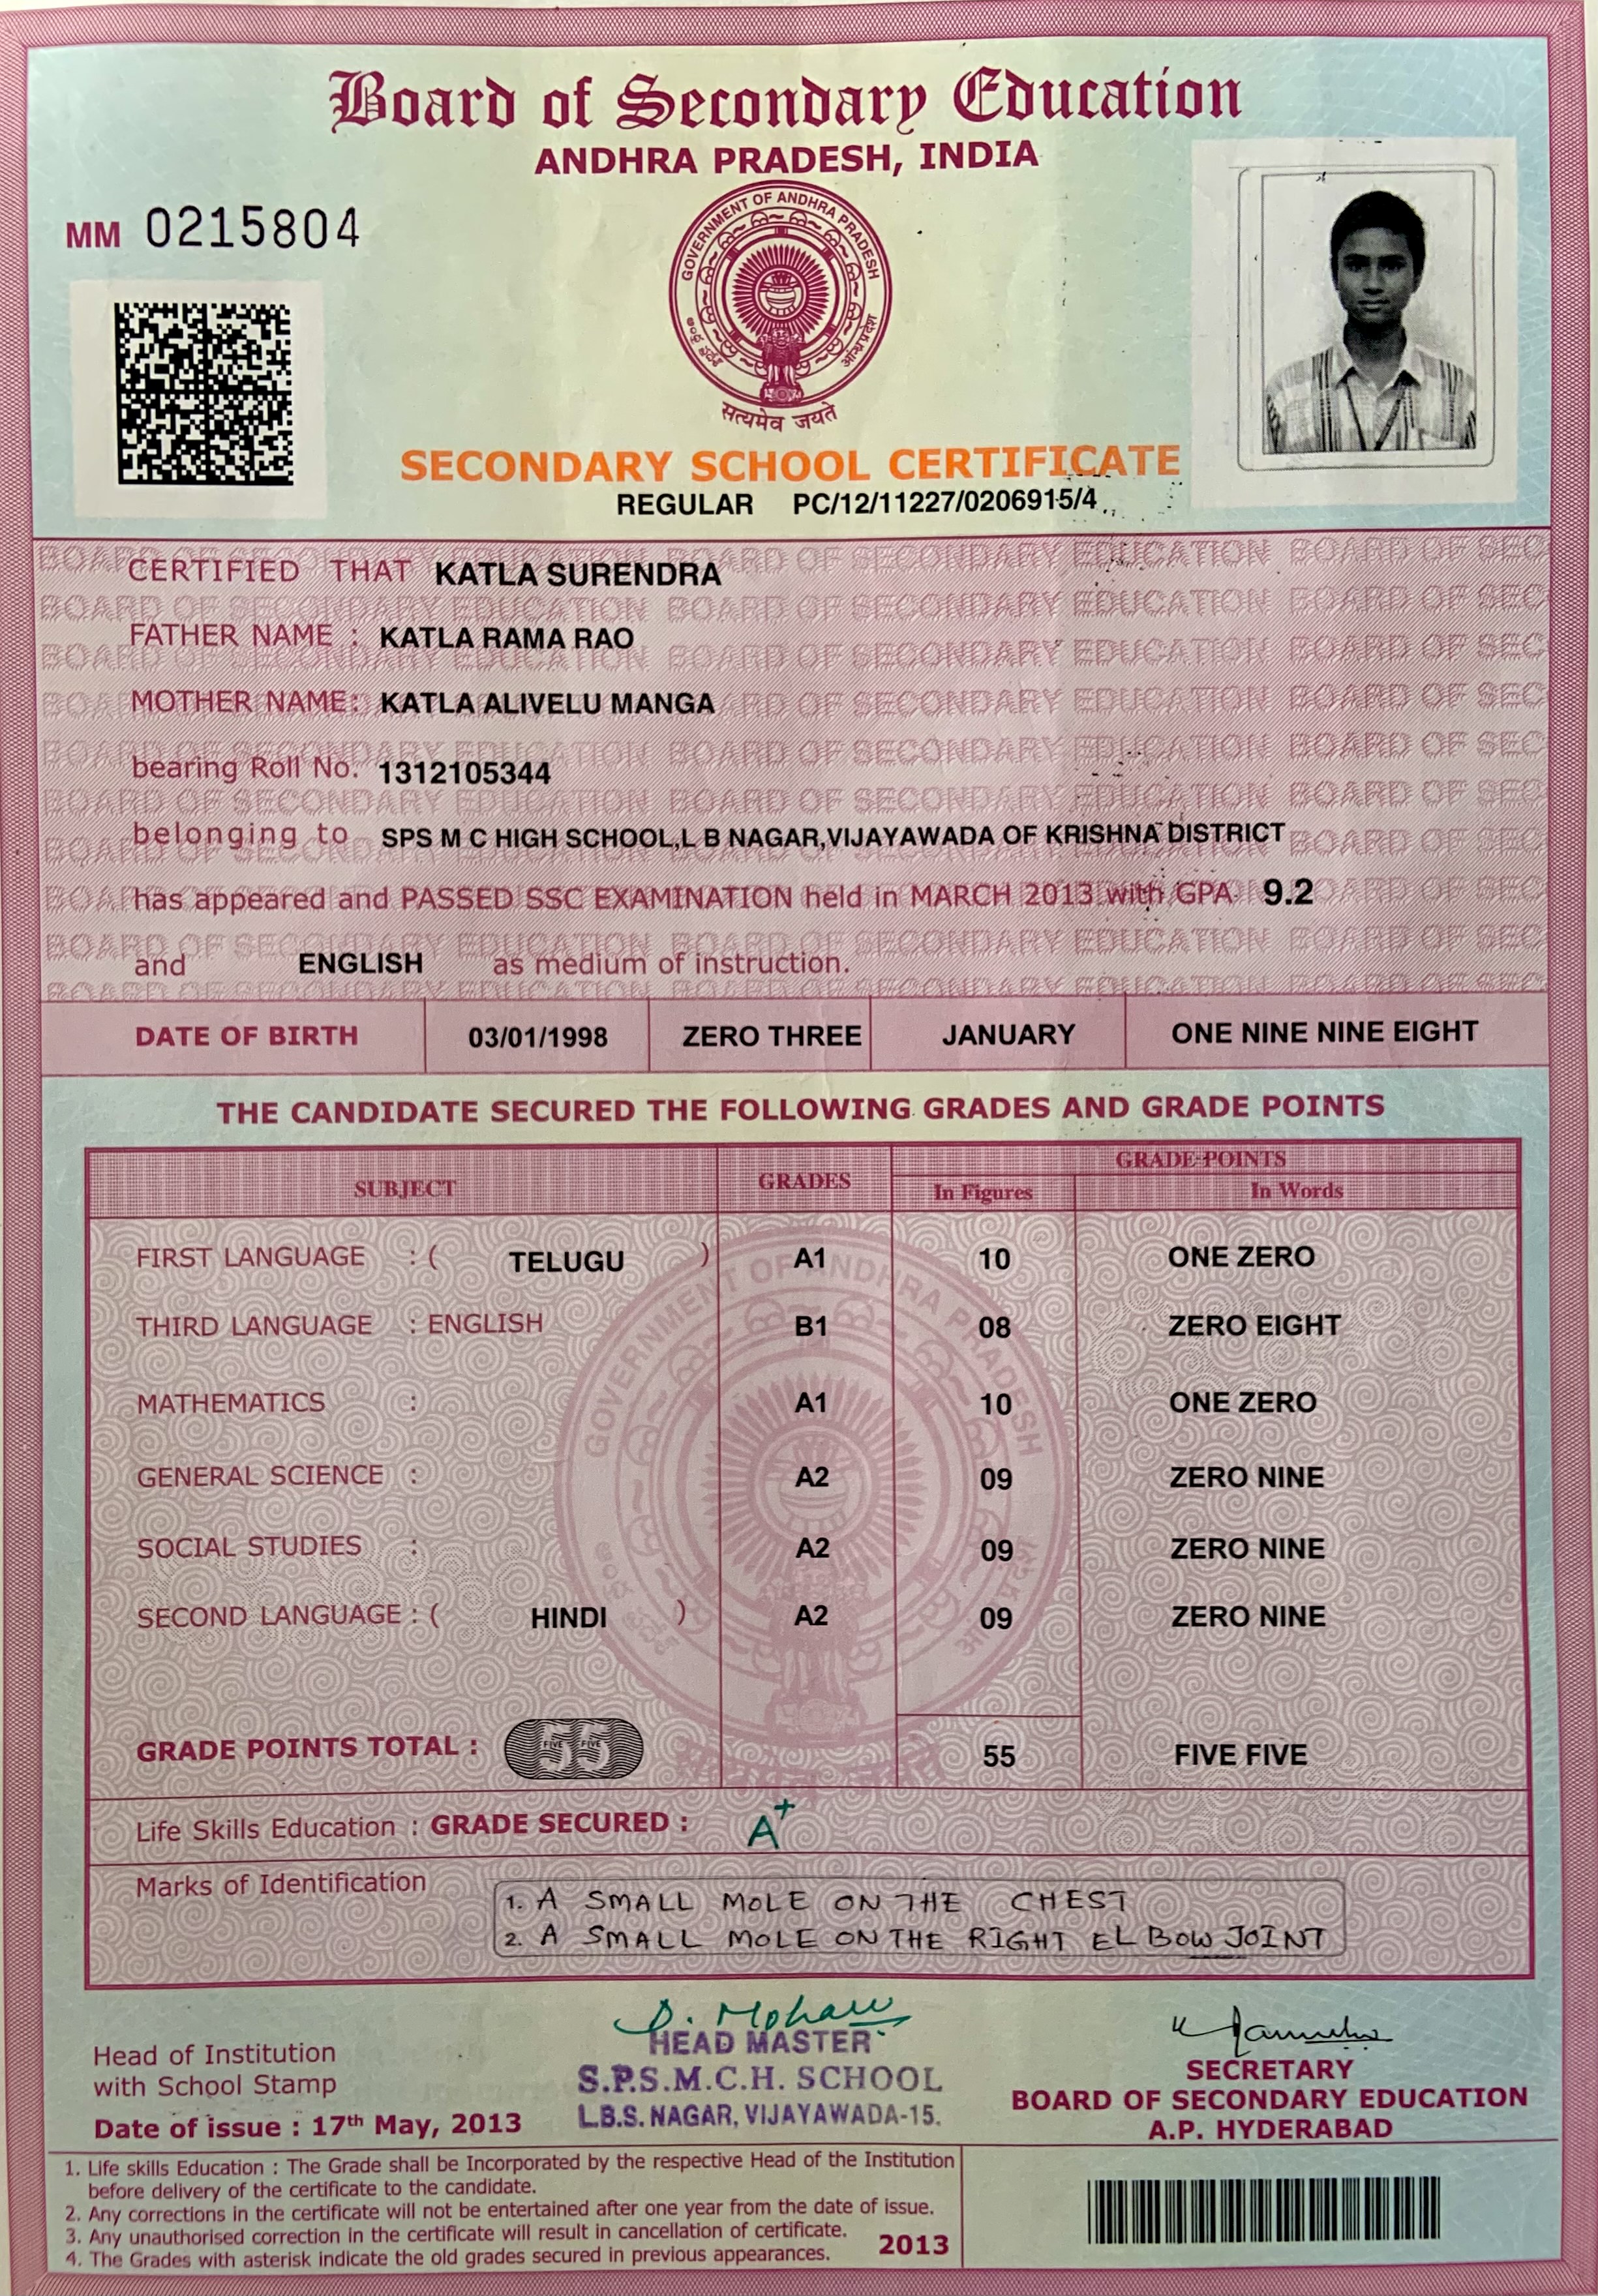 Board of Secondary Education
ANDHRA PRADESH, INDIA
MM 0215804
GOVERNMENT OF ANDHRA PRADESH
आन्ध्र प्रदेश
सत्यमेव जयते
SECONDARY SCHOOL CERTIFICATE
REGULAR PC/12/11227/0206915/4
CERTIFIED THAT KATLA SURENDRA
FATHER NAME : KATLA RAMA RAO
MOTHER NAME: KATLA ALIVELU MANGA
bearing Roll No. 1312105344
belonging to SPS M C HIGH SCHOOL,L B NAGAR,VIJAYAWADA OF KRISHNA DISTRICT
has appeared and PASSED SSC EXAMINATION held in MARCH 2013 with GPA 9.2
and ENGLISH as medium of instruction.
DATE OF BIRTH 03/01/1998 ZERO THREE JANUARY ONE NINE NINE EIGHT
THE CANDIDATE SECURED THE FOLLOWING GRADES AND GRADE POINTS
SUBJECT GRADES GRADE POINTS
In Figures In Words
FIRST LANGUAGE : ( TELUGU ) A1 10 ONE ZERO
THIRD LANGUAGE : ENGLISH B1 08 ZERO EIGHT
MATHEMATICS : A1 10 ONE ZERO
GENERAL SCIENCE : A2 09 ZERO NINE
SOCIAL STUDIES : A2 09 ZERO NINE
SECOND LANGUAGE : ( HINDI ) A2 09 ZERO NINE
GRADE POINTS TOTAL : 55 55 FIVE FIVE
Life Skills Education : GRADE SECURED : A+
Marks of Identification
1. A SMALL MOLE ON THE CHEST
2. A SMALL MOLE ON THE RIGHT ELBOW JOINT
D. Mohan
HEAD MASTER
S.P.S.M.C.H. SCHOOL
L.B.S. NAGAR, VIJAYAWADA-15.
Head of Institution
with School Stamp
Date of issue : 17th May, 2013
SECRETARY
BOARD OF SECONDARY EDUCATION
A.P. HYDERABAD
1. Life skills Education : The Grade shall be Incorporated by the respective Head of the Institution
before delivery of the certificate to the candidate.
2. Any corrections in the certificate will not be entertained after one year from the date of issue.
3. Any unauthorised correction in the certificate will result in cancellation of certificate.
4. The Grades with asterisk indicate the old grades secured in previous appearances.
2013